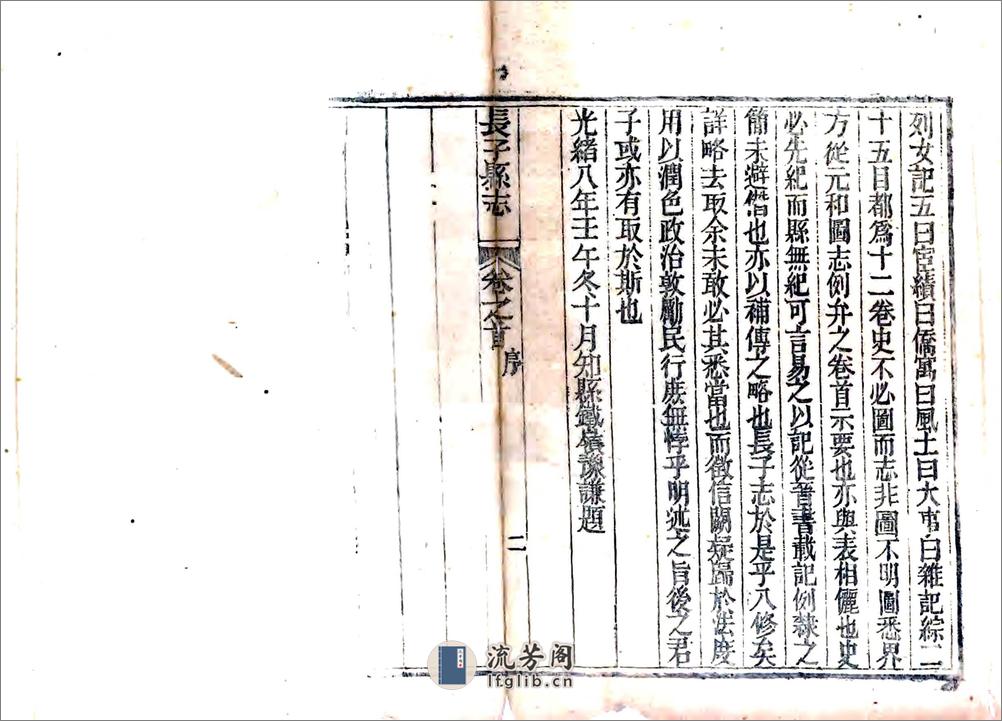 列女記五曰宦績曰僑寓曰風土曰大事曰雜記綜二
十五目都爲十二卷史不必圖而志非圖不明圖悉界
方從元和圖志例弁之卷首示要也亦與表相儷也史
必先紀而縣無紀可言易之以記從晉書載記例隸之
簡未避僭也亦以補傳之略也長子志於是乎八修矣
詳略去取余未敢必其悉當也而徵信闕疑歸於法度
用以潤色政治敦勵民行庶無悖乎明 之旨後之君
子或亦有取於斯也
光緒八年壬午冬十月知縣 謙題
長子縣志 卷之首 序 二
流芳阁
lfglib.cn